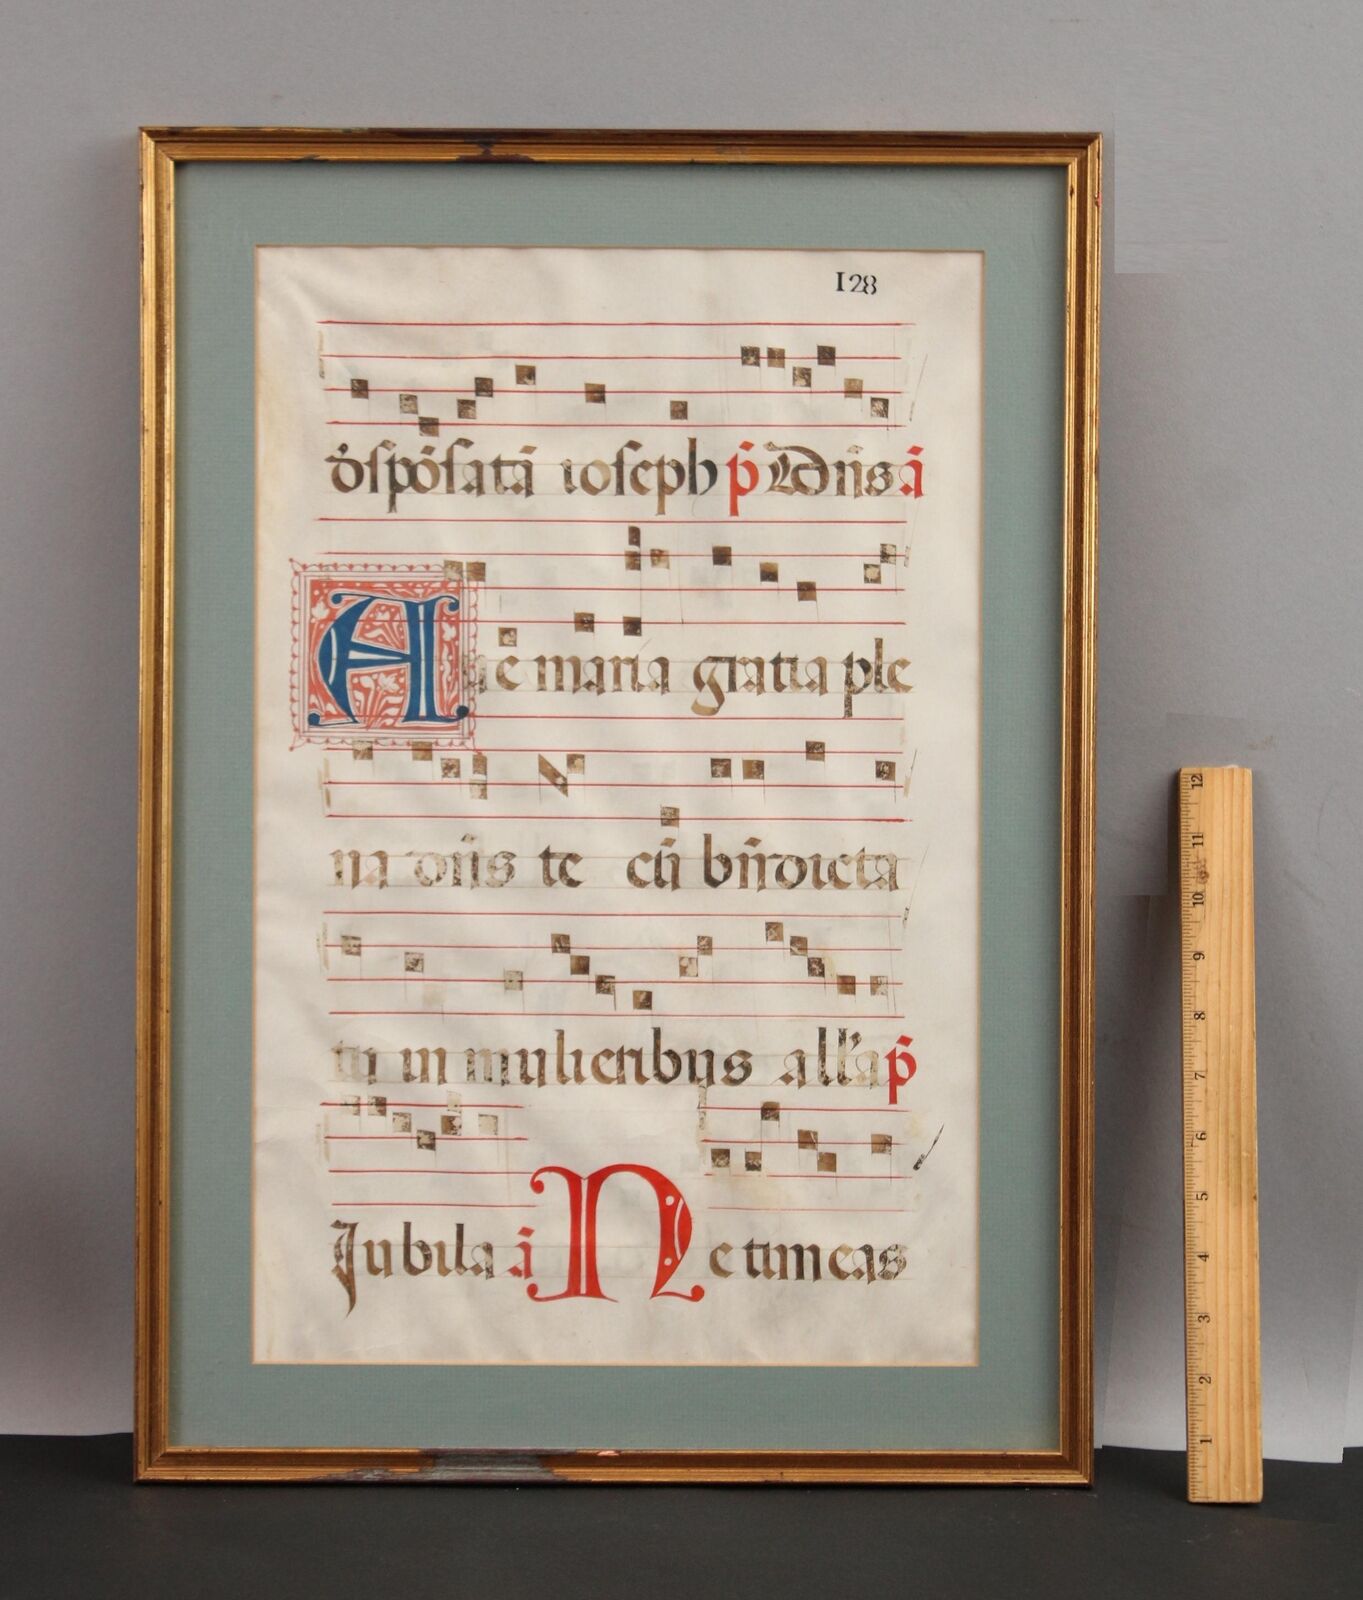 128
d̓spōsatā ioseph p̄ Dn̄s ā
Aue maria gratia ple
na dn̄s te cū bn̄dicta
tu in mulieribus all'a p̄
Jubila ā Ne timeas
12
11
10
9
8
7
6
5
4
3
2
1